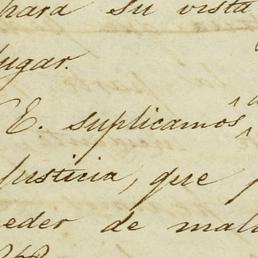 hara su vista
lugar.
E. suplicamos,
Justicia, que
eder de mal